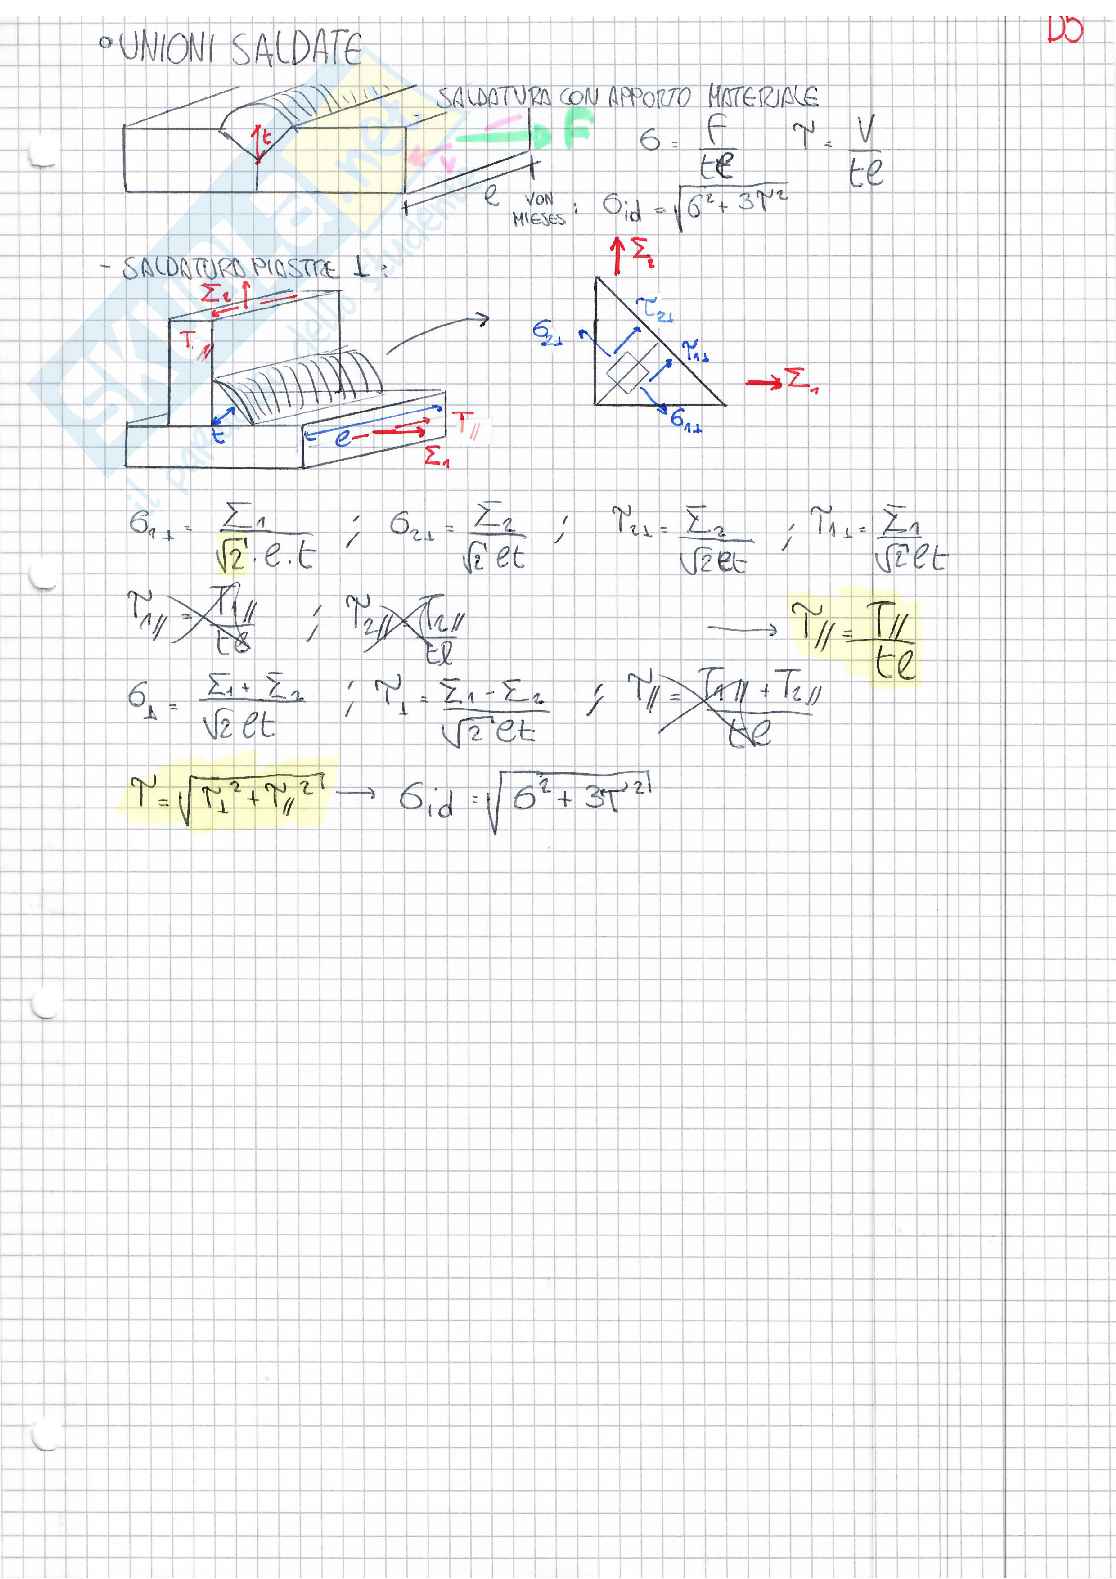 D5
° UNIONI SALDATE
SALDATURA CON APPORTO MATERIALE
t
F
l
σ = F/tl   τ = V/tl
VON MIESES: σid = √(σ² + 3τ²)
- SALDATURA PIASTRE ⊥ :
Σ2
T//
t
l
T//
Σ1
Σ2
τ2⊥
σ2⊥
τ1⊥
Σ1
σ1⊥
σ1⊥ = Σ1/(√2 · l · t) ; σ2⊥ = Σ2/(√2 lt) ; τ2⊥ = Σ2/(√2 lt) ; τ1⊥ = Σ1/(√2 lt)
τ1// = T1///tl ; τ2// = T2///tl → τ// = T///tl
σ⊥ = (Σ1 + Σ2)/(√2 lt) ; τ⊥ = (Σ1 - Σ2)/(√2 lt) ; τ// = (T1// + T2//)/tl
τ = √(τ⊥² + τ//²) → σid = √(σ² + 3τ²)